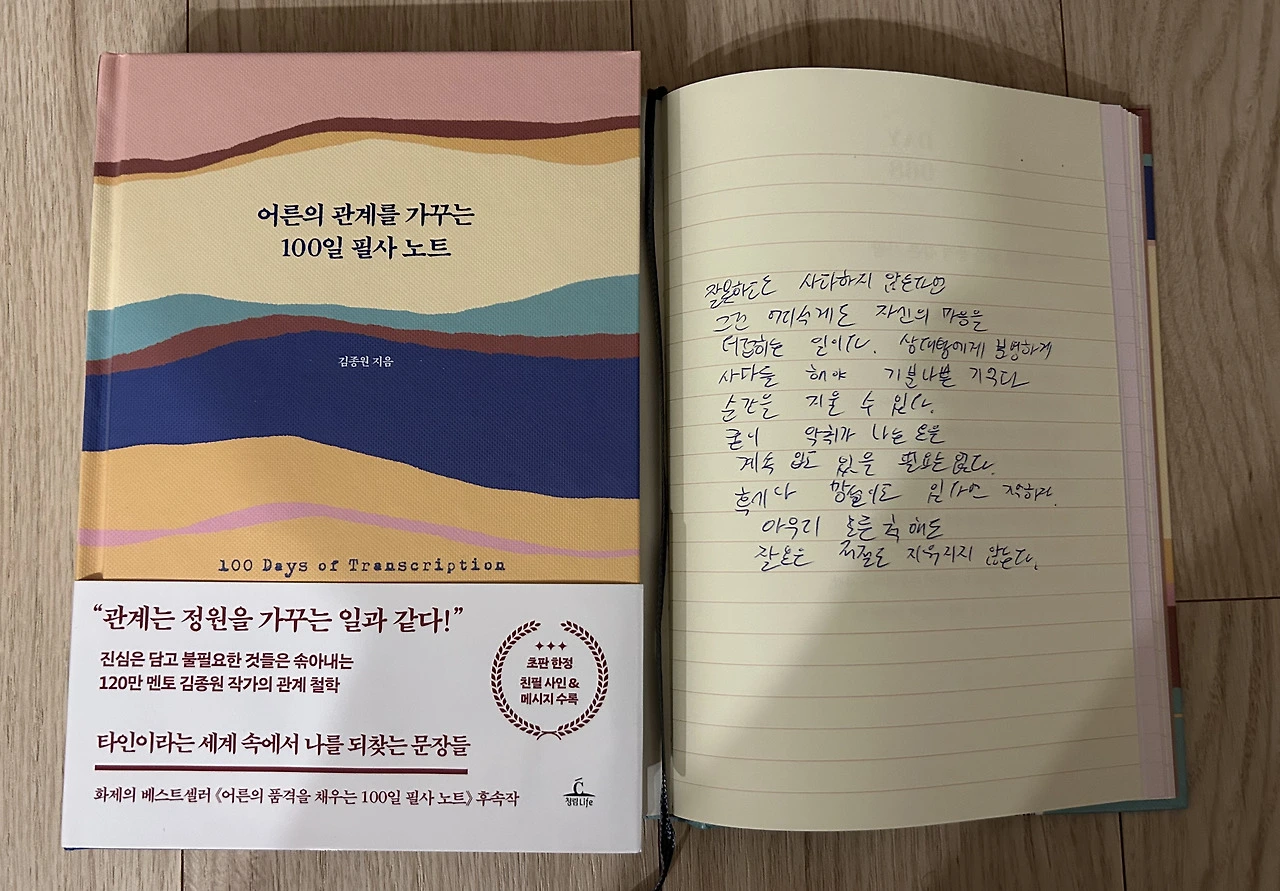 어른의 관계를 가꾸는
100일 필사 노트
김종원 지음
100 Days of Transcription
“관계는 정원을 가꾸는 일과 같다!”
진심은 담고 불필요한 것들은 솎아내는
120만 멘토 김종원 작가의 관계 철학
초판 한정
친필 사인 &
메시지 수록
타인이라는 세계 속에서 나를 되찾는 문장들
화제의 베스트셀러 《어른의 품격을 채우는 100일 필사 노트》 후속작
청림Life
DAY
잘못하고도 사과하지 않는다면
그건 어리석게도 자신의 마음을
더럽히는 일이다. 상대방에게 분명하게
사과를 해야 기분나쁜 기억과
순간을 지울 수 있다.
굳이 악취가 나는 옷을
계속 입고 있을 필요는 없다.
흑시나 망설이고 있다면 기억하라.
아무리 모른 척 해도
잘못은 저절로 지워지지 않는다.